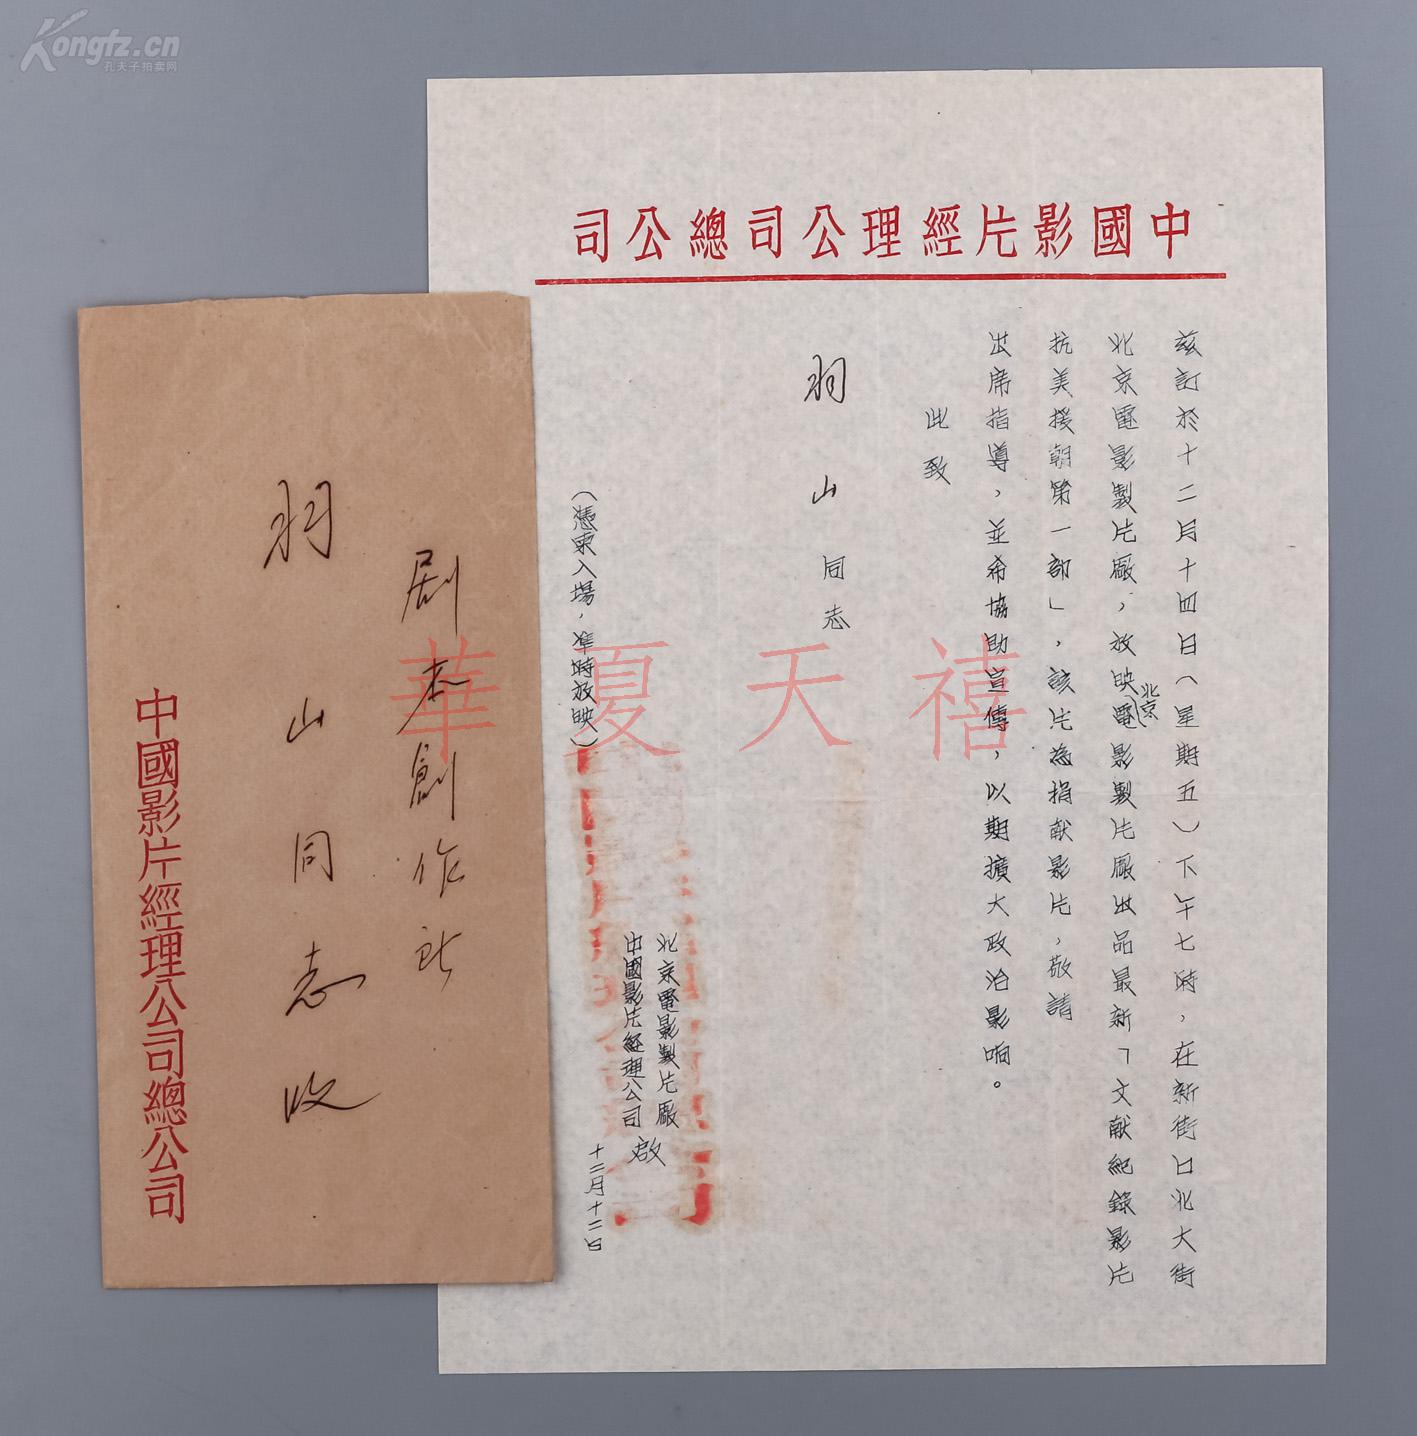 Kongfz.cn
孔夫子拍卖网
中國影片經理公司總公司
茲訂於十二月十四日（星期五）下午七時，在新街口北大街
北京電影製片廠，放映電影製片廠出品最新「文献紀錄影片
北京
抗美援朝第一部」，該片為捐献影片，敬請
出席指導，並希協助宣傳，以期擴大政治影响。
此致
羽山同志
北京電影製片廠
中國影片經理公司
啟
十二月十二日
（憑柬入場，準時放映）
劇本創作社
羽山同志收
中國影片經理公司總公司
華夏天禧